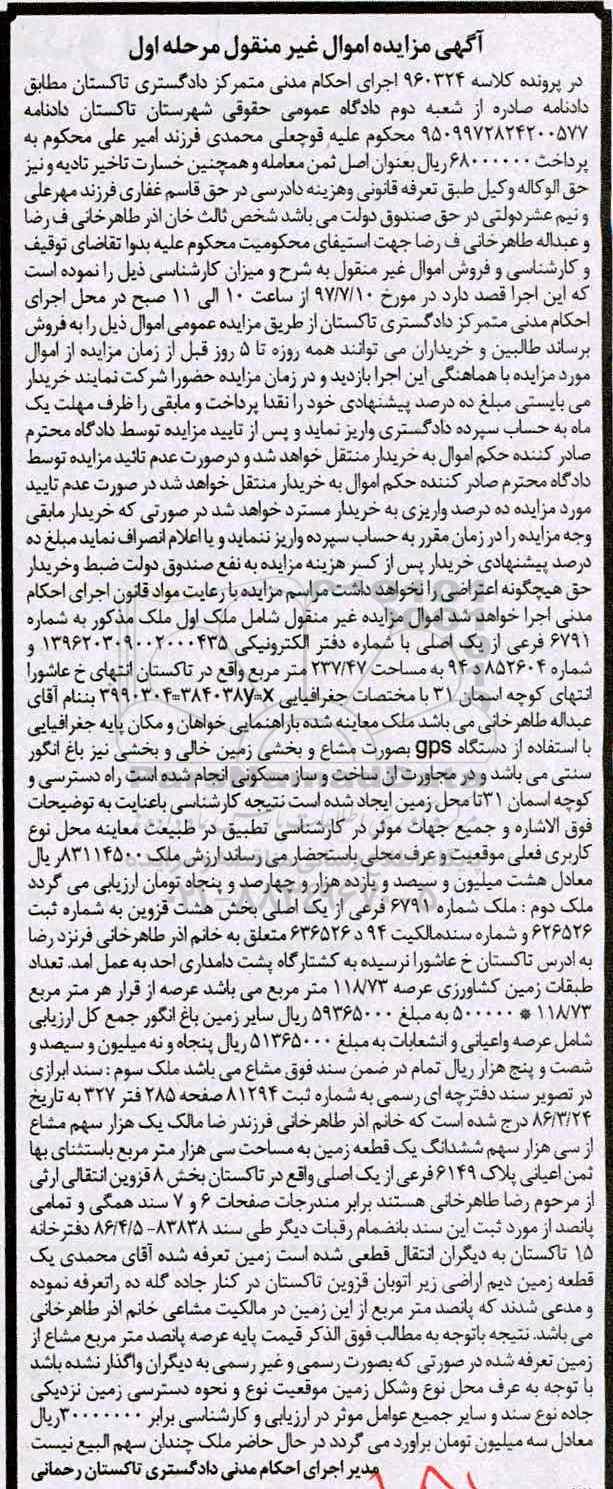 آگهی مزایده اموال غیر منقول مرحله اول
در پرونده کلاسه ۹۶۰۳۲۴ اجرای احکام مدنی متمرکز دادگستری تاکستان مطابق
دادنامه صادره از شعبه دوم دادگاه عمومی حقوقی شهرستان تاکستان دادنامه
۹۵۰۹۹۷۲۸۲۴۲۰۰۵۷۷ محکوم علیه قوچعلی محمدی فرزند امیر علی محکوم به
پرداخت ۶۸۰۰۰۰۰۰ ریال بعنوان اصل ثمن معامله و همچنین خسارت تاخیر تادیه و نیز
حق الوکاله وکیل طبق تعرفه قانونی وهزینه دادرسی در حق قاسم غفاری فرزند مهرعلی
و نیم عشردولتی در حق صندوق دولت می باشد شخص ثالث خان اذر طاهرخانی ف رضا
و عبداله طاهرخانی ف رضا جهت استیفای محکومیت محکوم علیه بدوا تقاضای توقیف
و کارشناسی و فروش اموال غیر منقول به شرح و میزان کارشناسی ذیل را نموده است
که این اجرا قصد دارد در مورخ ۹۷/۷/۱۰ از ساعت ۱۰ الی ۱۱ صبح در محل اجرای
احکام مدنی متمرکز دادگستری تاکستان از طریق مزایده عمومی اموال ذیل را به فروش
برساند طالبین و خریداران می توانند همه روزه تا ۵ روز قبل از زمان مزایده از اموال
مورد مزایده با هماهنگی این اجرا بازدید و در زمان مزایده حضورا شرکت نمایند خریدار
می بایستی مبلغ ده درصد پیشنهادی خود را نقدا پرداخت و مابقی را ظرف مهلت یک
ماه به حساب سپرده دادگستری واریز نماید و پس از تایید مزایده توسط دادگاه محترم
صادر کننده حکم اموال به خریدار منتقل خواهد شد و درصورت عدم تائید مزایده توسط
دادگاه محترم صادر کننده حکم اموال به خریدار منتقل خواهد شد در صورت عدم تایید
مورد مزایده ده درصد واریزی به خریدار مسترد خواهد شد در صورتی که خریدار مابقی
وجه مزایده را در زمان مقرر به حساب سپرده واریز ننماید و یا اعلام انصراف نماید مبلغ ده
درصد پیشنهادی خریدار پس از کسر هزینه مزایده به نفع صندوق دولت ضبط وخریدار
حق هیچگونه اعتراضی را نخواهد داشت مراسم مزایده با رعایت مواد قانون اجرای احکام
مدنی اجرا خواهد شد اموال مزایده غیر منقول شامل ملک اول ملک مذکور به شماره
۶۷۹۱ فرعی از یک اصلی با شماره دفتر الکترونیکی ۱۳۹۶۲۰۳۰۹۰۰۲۰۰۰۴۳۵ و
شماره ۸۵۲۶۰۴ د ۹۴ به مساحت ۲۳۷/۴۷ متر مربع واقع در تاکستان انتهای خ عاشورا
انتهای کوچه اسمان ۳۱ با مختصات جغرافیایی x=۳۸۴۰۳۸y=۳۹۹۰۳۰۴ بننام آقای
عبداله طاهرخانی می باشد ملک معاینه شده باراهنمایی خواهان و مکان پایه جغرافیایی
با استفاده از دستگاه gps بصورت مشاع و بخشی زمین خالی و بخشی نیز باغ انگور
سنتی می باشد و در مجاورت ان ساخت و ساز مسکونی انجام شده است راه دسترسی و
کوچه اسمان ۳۱تا محل زمین ایجاد شده است نتیجه کارشناسی باعنایت به توضیحات
فوق الاشاره و جمیع جهات موثر در کارشناسی تطبیق در طبیعت معاینه محل نوع
کاربری فعلی موقعیت و عرف محلی باستحضار می رساند ارزش ملک ۸۳۱۱۴۵۰۰ر یال
معادل هشت میلیون و سیصد و یازده هزار و چهارصد و پنجاه تومان ارزیابی می گردد
ملک دوم : ملک شماره ۶۷۹۱ فرعی از یک اصلی بخش هشت قزوین به شماره ثبت
۶۲۶۵۲۶ و شماره سندمالکیت ۹۴ د ۶۳۶۵۲۶ متعلق به خانم اذر طاهرخانی فرنزد رضا
به ادرس تاکستان خ عاشورا نرسیده به کشتارگاه پشت دامداری احد به عمل امد. تعداد
طبقات زمین کشاورزی عرصه ۱۱۸/۷۳ متر مربع می باشد عرصه از قرار هر متر مربع
۱۱۸/۷۳ * ۵۰۰۰۰۰ به مبلغ ۵۹۳۶۵۰۰۰ ریال سایر زمین باغ انگور جمع کل ارزیابی
شامل عرصه واعیانی و انشعابات به مبلغ ۵۱۳۶۵۰۰۰ ریال پنجاه و نه میلیون و سیصد و
شصت و پنج هزار ریال تمام در ضمن سند فوق مشاع می باشد ملک سوم : سند ابرازی
در تصویر سند دفترچه ای رسمی به شماره ثبت ۸۱۲۹۴ صفحه ۲۸۵ فتر ۳۲۷ به تاریخ
۸۶/۳/۲۴ درج شده است که خانم اذر طاهرخانی فرزندر ضا مالک یک هزار سهم مشاع
از سی هزار سهم ششدانگ یک قطعه زمین به مساحت سی هزار متر مربع باستثنای بها
ثمن اعیانی پلاک ۶۱۴۹ فرعی از یک اصلی واقع در تاکستان بخش ۸ قزوین انتقالی ارثی
از مرحوم رضا طاهرخانی هستند برابر مندرجات صفحات ۶ و ۷ سند همگی و تمامی
پانصد از مورد ثبت این سند بانضمام رقبات دیگر طی سند ۸۳۸۳۸- ۸۶/۴/۵ دفترخانه
۱۵ تاکستان به دیگران انتقال قطعی شده است زمین تعرفه شده آقای محمدی یک
قطعه زمین دیم اراضی زیر اتوبان قزوین تاکستان در کنار جاده گله ده راتعرفه نموده
و مدعی شدند که پانصد متر مربع از این زمین در مالکیت مشاعی خانم اذر طاهرخانی
می باشد. نتیجه باتوجه به مطالب فوق الذکر قیمت پایه عرصه پانصد متر مربع مشاع از
زمین تعرفه شده در صورتی که بصورت رسمی و غیر رسمی به دیگران واگذار نشده باشد
با توجه به عرف محل نوع وشکل زمین موقعیت نوع و نحوه دسترسی زمین نزدیکی
جاده نوع سند و سایر جمیع عوامل موثر در ارزیابی و کارشناسی برابر ۳۰۰۰۰۰۰۰ریال
معادل سه میلیون تومان براورد می گردد در حال حاضر ملک چندان سهم البیع نیست
مدیر اجرای احکام مدنی دادگستری تاکستان رحمانی